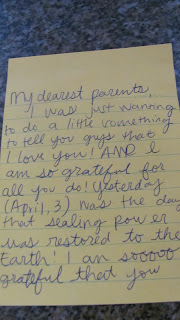 My dearest parents,
I was just wanting
to do a little something
to tell you guys that
I love you! AND I
am so grateful for
all you do! Yesterday
(April, 3) was the day
that sealing power
was restored to the
Earth! I am sooooo
grateful that you